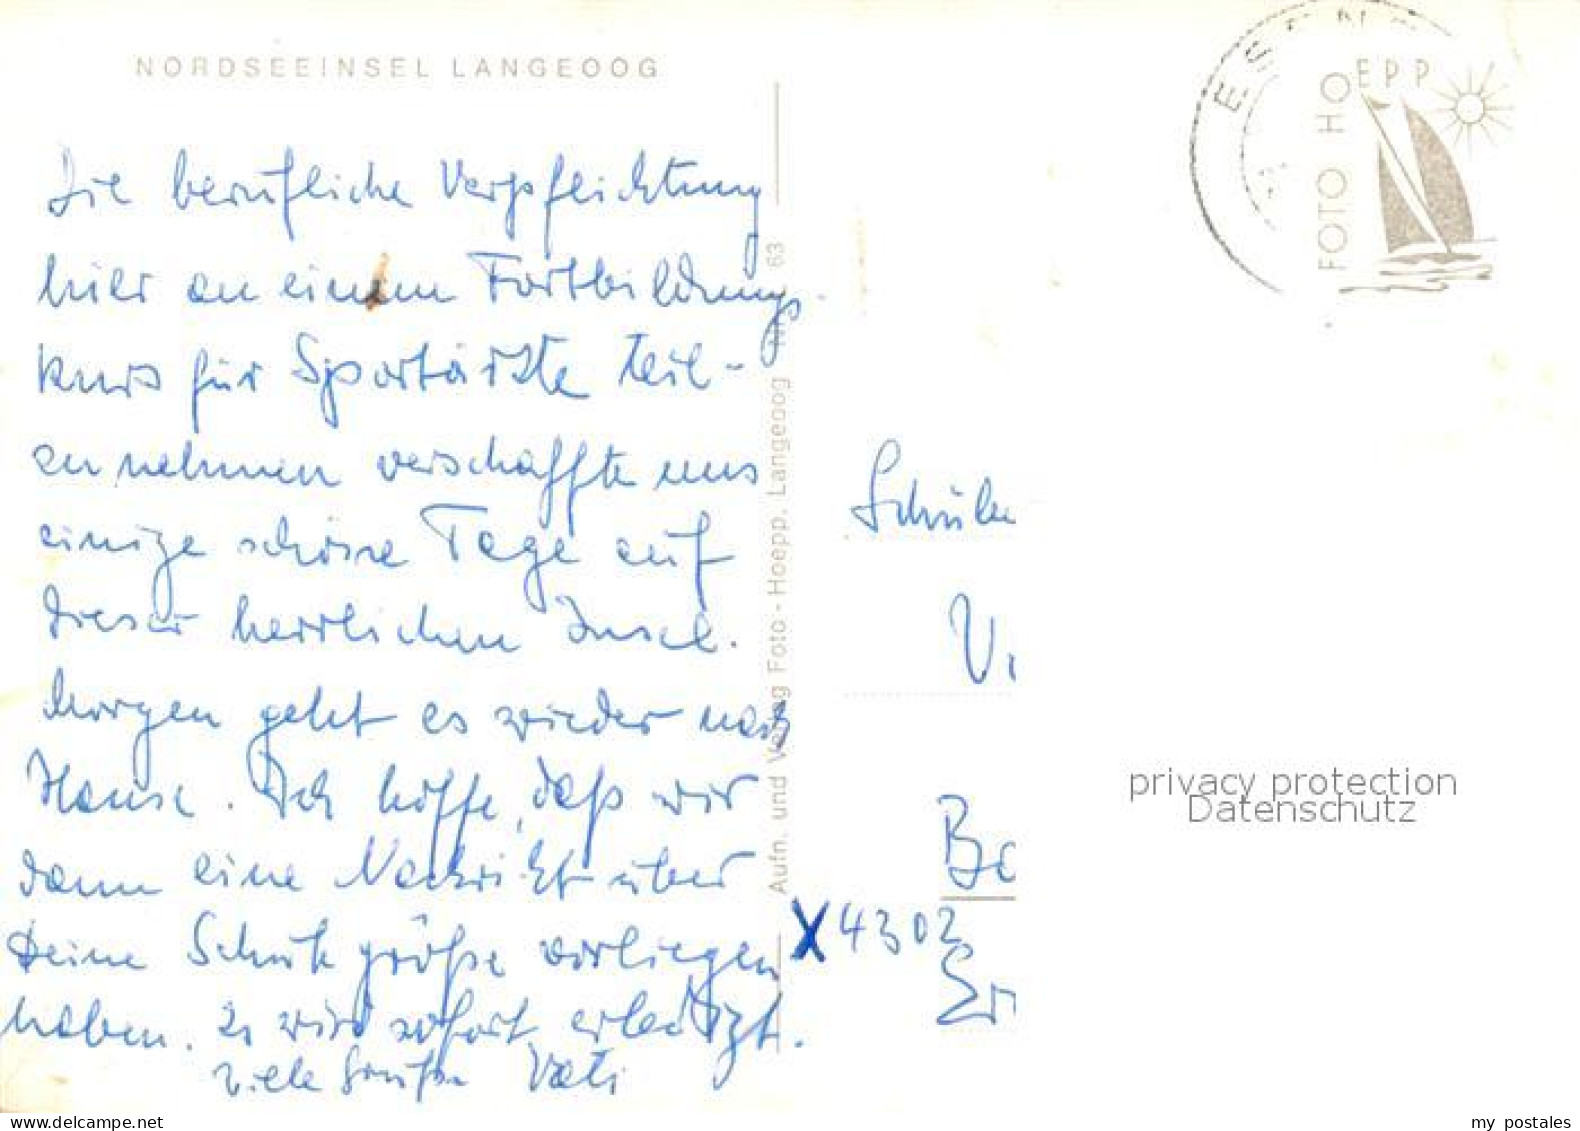 NORDSEEINSEL LANGEOOG
Die berufliche Verpflichtung
hier an einem Fortbildungs
kurs für Sportärzte teil-
zunehmen verschaffte uns
einige schöne Tage auf
dieser herrlichen Insel.
Morgen geht es wieder nach
Hause. Ich hoffe, daß wir
dann eine Nachricht über
Deine Schuhgröße vorliegen
haben. Es wird sofort erledigt.
Viele Grüße Vati
Aufn. und Verlag Foto-Hoepp, Langeoog 63
FOTO HOEPP
Schüler
Vi
Bo
X 4302
Er
privacy protection
Datenschutz
my postales